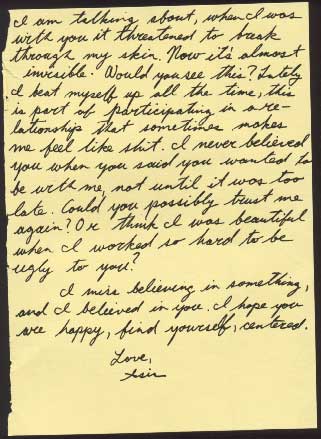 I am talking about, when I was
with you it threatened to break
through my skin. Now it's almost
invisible. Would you see this? Lately
I beat myself up all the time, this
is part of participating in a re-
lationship that sometimes makes
me feel like shit. I never believed
you when you said you wanted to
be with me, not until it was too
late. Could you possibly trust me
again? Or think I was beautiful
when I worked so hard to be
ugly to you?
I miss believing in something,
and I believed in you. I hope you
are happy, find yourself, centered.
Love,